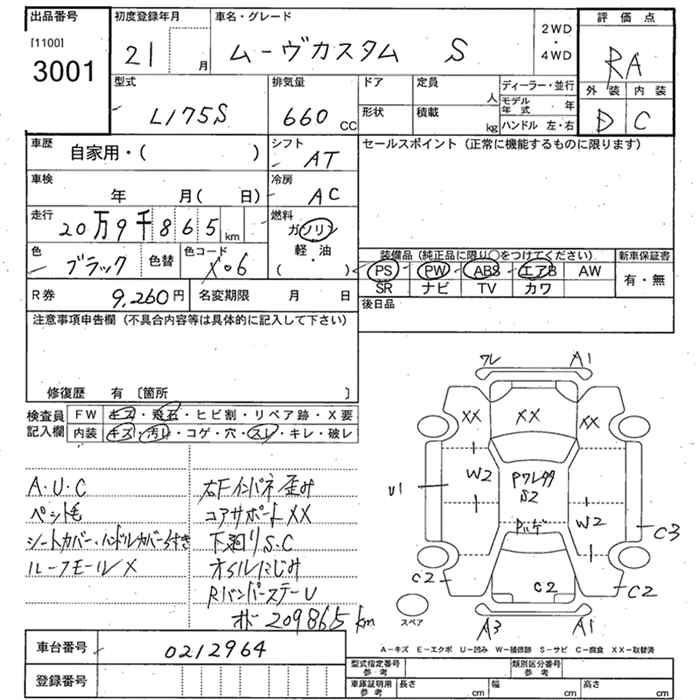 出品番号
[1100]
3001
初度登録年月
21 月
車名・グレード
ムーヴカスタム S
2WD
・
4WD
評価点
RA
外装 内装
D C
型式
L175S
排気量
660 CC
ドア
形状
定員 人
積載 kg
ディーラー・並行
モデル年式 年
ハンドル 左・右
車歴
自家用・( )
シフト
AT
セールスポイント (正常に機能するものに限ります)
車検
年 月( 日)
冷房
AC
走行
20万9千865km
燃料
ガソリン
軽・油
( )
色
ブラック
色替
色コード
X06
装備品 (純正品に限り○をつけてください)
PS PW ABS エアB AW
SR ナビ TV カワ
新車保証書
有・無
R券
9,260円
名変期限 月 日
後日品
注意事項申告欄 (不具合内容等は具体的に記入して下さい)
修復歴 有〔箇所 〕
検査員記入欄
FW キズ・飛石・ヒビ割・リペア跡・X要
内装 キズ・汚れ・コゲ・穴・スレ・キレ・破レ
A・U・C
ペット毛
シートカバー・ハンドルカバー付き
ルーフモールX
右Fインパネ歪み
コアサポートXX
下廻りS.C
オイルにじみ
RバンパーステーU
オド 209865km
ワレ A1
XX XX XX
W2
PワレタタS2
U1
Pハゲ
W2
C3
C2 C2 C2
A3 A1
スペア
A−キズ E−エクボ U−凹み W−補修跡 S−サビ C−腐食 XX−取替済
車台番号
0212964
登録番号
型式指定番号
参考
類別区分番号
参考
車庫証明用
参考
長さ cm
幅 cm
高さ cm